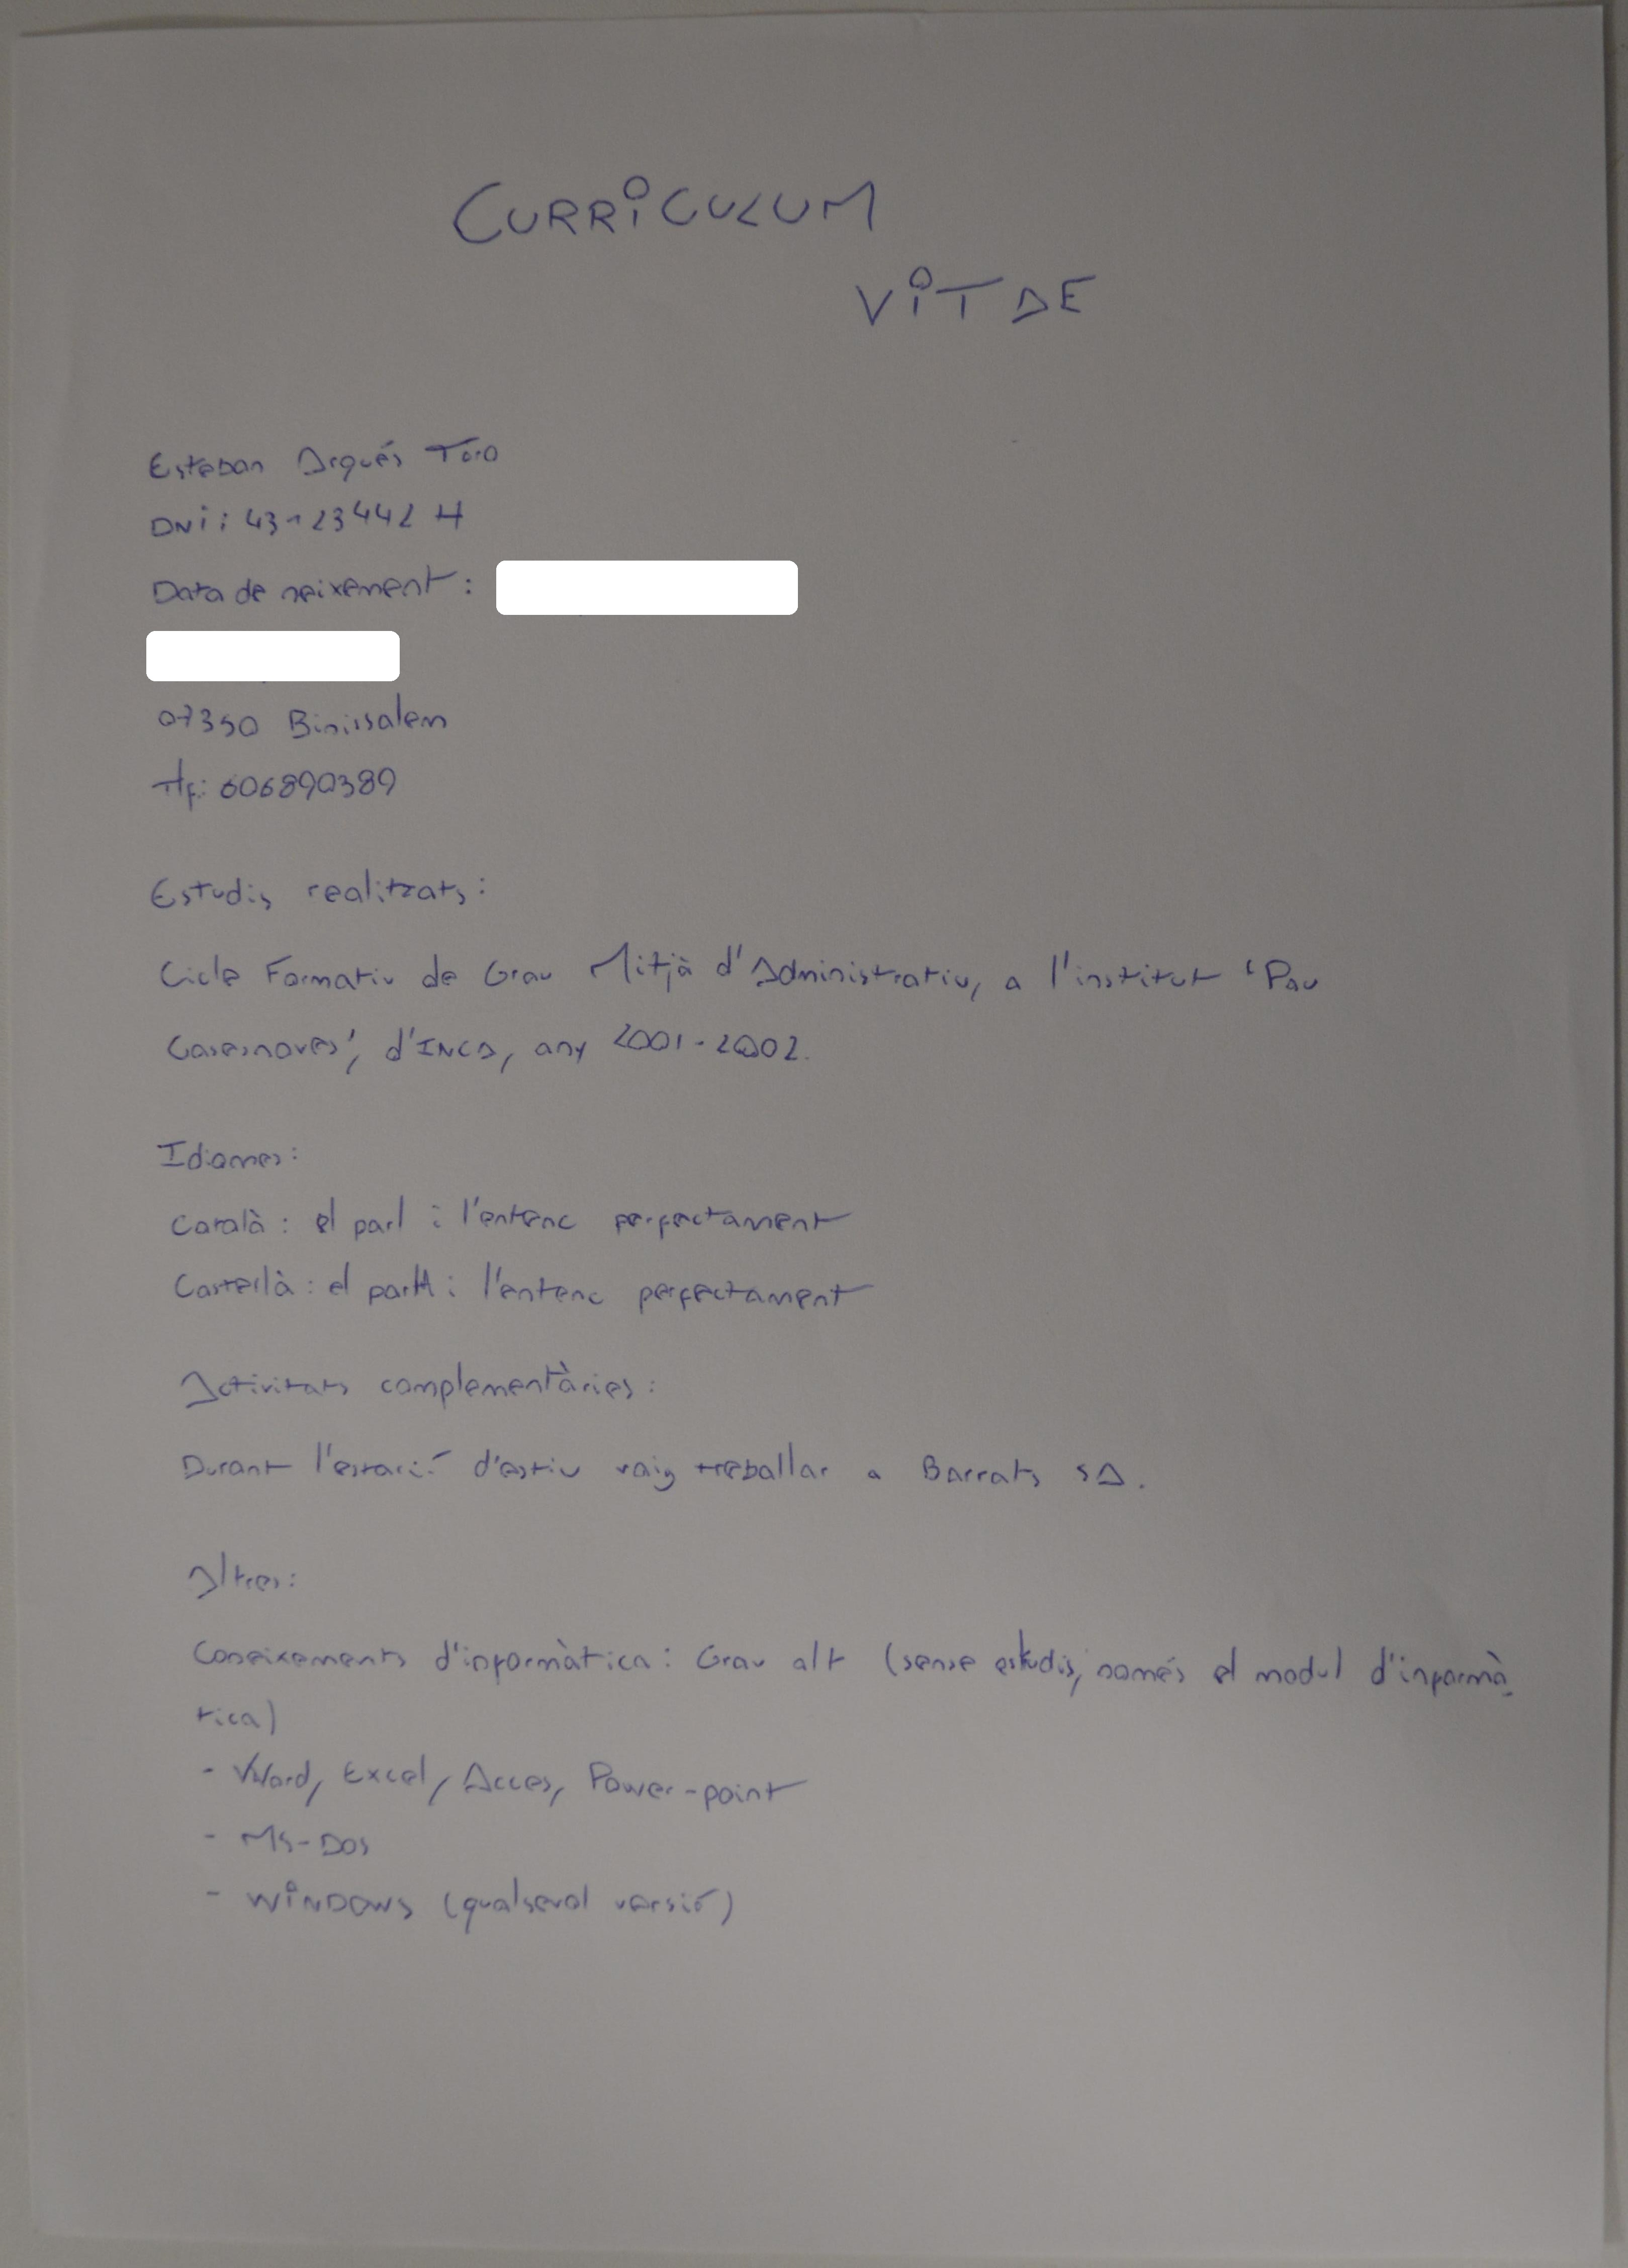 CURRICULUM
VITAE
Esteban Arqués Toro
DNI: 43123442 H
Data de neixement:
07350 Binissalem
Tlf: 606890389
Estudis realitzats:
Cicle Formatiu de Grau Mitjà d'Administratiu, a l'institut 'Pau
Casesnoves', d'INCA, any 2001-2002.
Idiomes:
Català: el parl i l'entenc perfectament
Castellà: el parl i l'entenc perfectament
Activitats complementàries:
Durant l'estació d'estiu vaig treballar a Barrats SA.
Altres:
Coneixements d'informàtica: Grau alt (sense estudis, només el modul d'informà
tica)
- Word, Excel, Acces, Power-point
- MS-DOS
- WINDOWS (qualsevol versió)